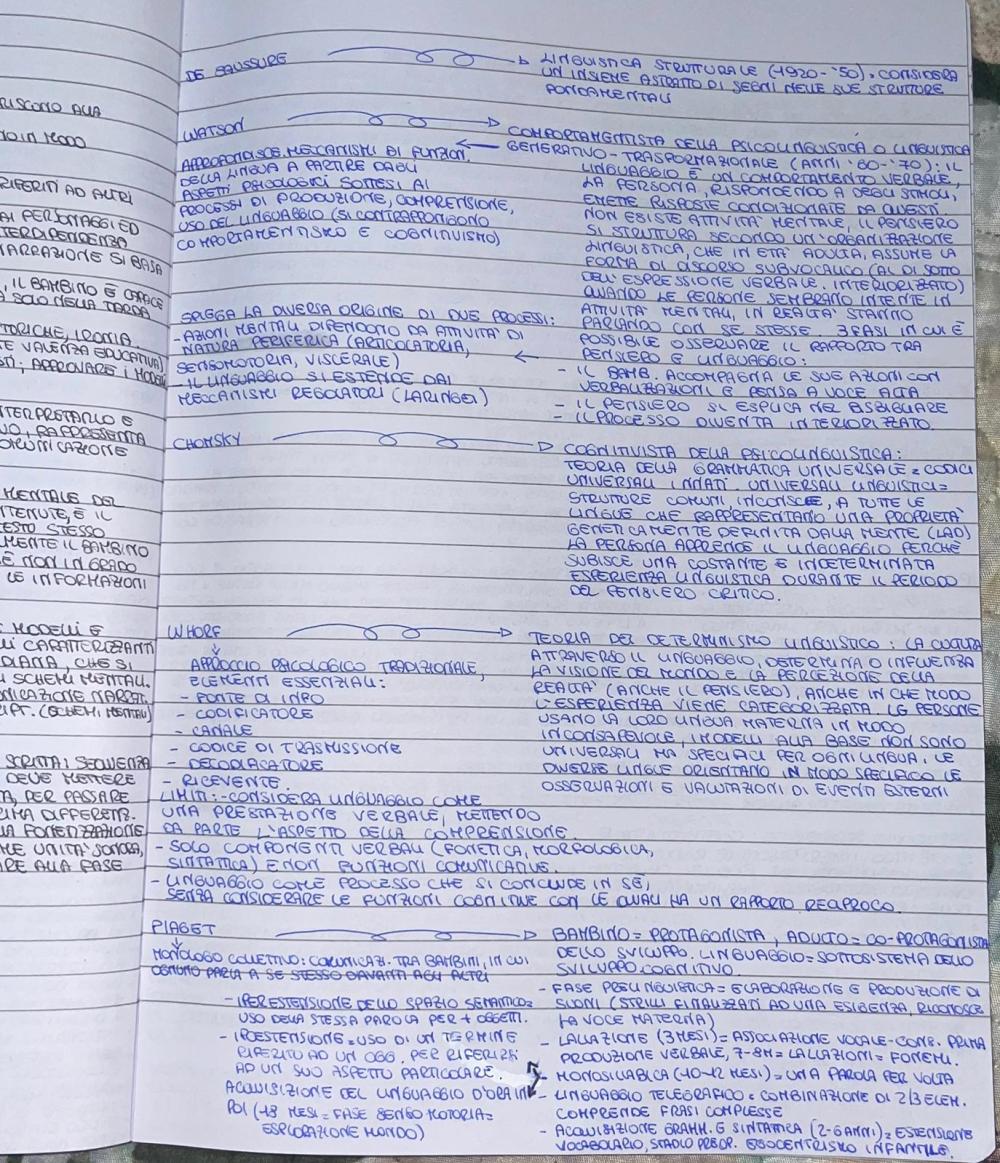 RISCONO ALLA
NO IN MODO
RIFERITI AD ALTRI
AI PERSONAGGI ED
TERDIPENDENZA
NARRAZIONE SI BASA
IL BAMBINO È CAPACE
A SOLO NELLA TARDA
TORICHE, IRONIA.
TE VALENZA EDUCATIVA)
STI, APPROVARE I MODELLI
NTERPRETARLO E
VO, RAPPRESENTA
OMUNICAZIONE
MENTALE DEL
TTENUTE, E IL
ESTO STESSO
MENTE IL BAMBINO
È NON IN GRADO
LE INFORMAZIONI
E MODELLI E
LI CARATTERIZZANTI
DIANA, CHE SI
U SCHEMI MENTALI.
NICAZIONE NARRAT.
RIPT. (SCHEMI MENTALI)
SCRITTA: SEQUENZA
DEVE METTERE
A, PER PASSARE
RIMA DIFFERENZ.
LA FONETIZZAZIONE
ME UNITÀ SONORA,
ARE ALLA FASE
DE SAUSSURE
LINGUISTICA STRUTTURALE (1920-'50), CONSIDERA
UN INSIEME ASTRATTO DI SEGNI NELLE SUE STRUTTURE
FONDAMENTALI
WATSON
COMPORTAMENTISTA DELLA PSICOLINGUISTICA O LINGUISTICA
GENERATIVO-TRASFORMAZIONALE (ANNI '60-'70): IL
LINGUAGGIO È UN COMPORTAMENTO VERBALE,
LA PERSONA, RISPONDENDO A DEGLI STIMOLI,
EMETTE RISPOSTE CONDIZIONATE DA QUESTI
NON ESISTE ATTIVITÀ MENTALE, IL PENSIERO
SI STRUTTURA SECONDO UN'ORGANIZZAZIONE
LINGUISTICA, CHE IN ETÀ ADULTA, ASSUME LA
FORMA DI DISCORSO SUBVOCALICO (AL DI SOTTO
DELL'ESPRESSIONE VERBALE. INTERIORIZZATO)
QUANDO LE PERSONE SEMBRANO INTENTE IN
ATTIVITÀ MENTALI, IN REALTÀ STANNO
PARLANDO CON SE STESSE. 3 FASI IN CUI È
POSSIBILE OSSERVARE IL RAPPORTO TRA
PENSIERO E LINGUAGGIO:
- IL BAMB. ACCOMPAGNA LE SUE AZIONI CON
VERBALIZZAZIONI E PENSA A VOCE ALTA
- IL PENSIERO SI ESPLICA NEL BISBIGLIARE
- IL PROCESSO DIVENTA INTERIORIZZATO.
APPROFONDISCE MECCANISMI DI FUNZION.
DELLA LINGUA A PARTIRE DAGLI
ASPETTI PSICOLOGICI SOTTESI AI
PROCESSI DI PRODUZIONE, COMPRENSIONE,
USO DEL LINGUAGGIO (SI CONTRAPPONGONO
COMPORTAMENTISMO E COGNITIVISMO)
SPIEGA LA DIVERSA ORIGINE DI DUE PROCESSI:
- AZIONI MENTALI DIPENDONO DA ATTIVITÀ DI
NATURA PERIFERICA (ARTICOLATORIA,
SENSOMOTORIA, VISCERALE)
- IL LINGUAGGIO SI ESTENDE DAI
MECCANISMI REGOLATORI (LARINGEI)
CHOMSKY
COGNITIVISTA DELLA PSICOLINGUISTICA:
TEORIA DELLA GRAMMATICA UNIVERSALE = CODICI
UNIVERSALI INNATI. UNIVERSALI LINGUISTICI =
STRUTTURE COMUNI, INCONSCE, A TUTTE LE
LINGUE CHE RAPPRESENTANO UNA PROPRIETÀ
GENETICAMENTE DEFINITA DALLA MENTE (LAD)
LA PERSONA APPRENDE IL LINGUAGGIO PERCHÈ
SUBISCE UNA COSTANTE E INDETERMINATA
ESPERIENZA LINGUISTICA DURANTE IL PERIODO
DEL PENSIERO CRITICO.
WHORF
TEORIA DEL DETERMINISMO LINGUISTICO: LA CULTURA
ATTRAVERSO IL LINGUAGGIO, DETERMINA O INFLUENZA
LA VISIONE DEL MONDO E LA PERCEZIONE DELLA
REALTÀ (ANCHE IL PENSIERO), ANCHE IN CHE MODO
L'ESPERIENZA VIENE CATEGORIZZATA. LE PERSONE
USANO LA LORO LINGUA MATERNA IN MODO
INCONSAPEVOLE, I MODELLI ALLA BASE NON SONO
UNIVERSALI MA SPECIFICI PER OGNI LINGUA. LE
DIVERSE LINGUE ORIENTANO IN MODO SPECIFICO LE
OSSERVAZIONI E VALUTAZIONI DI EVENTI ESTERNI
APPROCCIO PSICOLOGICO TRADIZIONALE,
ELEMENTI ESSENZIALI:
- FONTE DI INFO
- CODIFICATORE
- CANALE
- CODICE DI TRASMISSIONE
- DECODIFICATORE
- RICEVENTE.
LIMITI: - CONSIDERA LINGUAGGIO COME
UNA PRESTAZIONE VERBALE, METTENDO
DA PARTE L'ASPETTO DELLA COMPRENSIONE.
- SOLO COMPONENTI VERBALI (FONETICA, MORFOLOGICA,
SINTATTICA) E NON FUNZIONI COMUNICATIVE.
- LINGUAGGIO COME PROCESSO CHE SI CONCLUDE IN SÈ,
SENZA CONSIDERARE LE FUNZIONI COGNITIVE CON LE QUALI HA UN RAPPORTO RECIPROCO.
PIAGET
BAMBINO = PROTAGONISTA, ADULTO = CO-PROTAGONISTA
DELLO SVILUPPO. LINGUAGGIO = SOTTOSISTEMA DELLO
SVILUPPO COGNITIVO.
- FASE PRELINGUISTICA = ELABORAZIONE E PRODUZIONE DI
SUONI (STRILLI FINALIZZATI AD UNA ESIGENZA, RICONOSCE
LA VOCE MATERNA)
- LALLAZIONE (3 MESI) = ASSOCIAZIONE VOCALE-CONS. PRIMA
PRODUZIONE VERBALE, 7-8M = LALLAZIONI = FONEMI.
- MONOSILLABICA (10-12 MESI) = UNA PAROLA PER VOLTA
- LINGUAGGIO TELEGRAFICO = COMBINAZIONE DI 2/3 ELEM.
COMPRENDE FRASI COMPLESSE
- ACQUISIZIONE GRAMM. E SINTATTICA (2-6 ANNI) = ESTENSIONE
VOCABOLARIO, STADIO PREOP. EGOCENTRISMO INFANTILE.
MONOLOGO COLLETTIVO: COMUNICAZ. TRA BAMBINI, IN CUI
OGNUNO PARLA A SE STESSO DAVANTI AGLI ALTRI
- IPERESTENSIONE DELLO SPAZIO SEMANTICO =
USO DELLA STESSA PAROLA PER + OGGETTI.
- IPOESTENSIONE = USO DI UN TERMINE
RIFERITO AD UN OGG. PER RIFERIRSI
AD UN SUO ASPETTO PARTICOLARE.
ACQUISIZIONE DEL LINGUAGGIO D'ORA IN
POI (18 MESI = FASE SENSO MOTORIA =
ESPLORAZIONE MONDO)